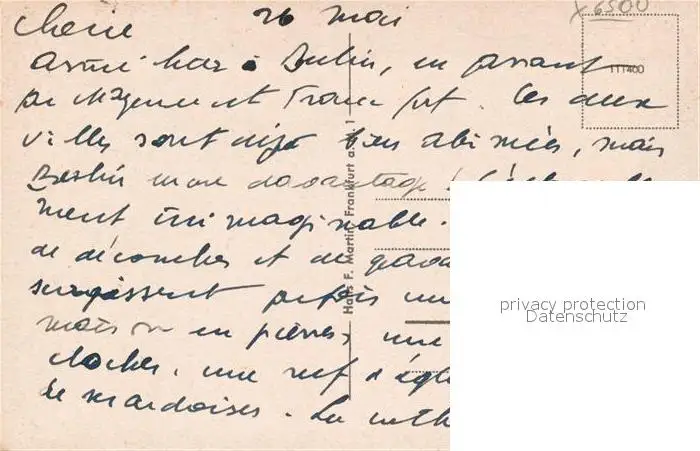 26 mai
x 6500
Chérie
111400
Arrivé hier à Berlin, en passant
par Mayence et Francfort. Ces deux
villes sont déjà bien abimées, mais
Berlin davantage !
ment inimaginable.
de décombres et de
surgissent parfois un
maison en pierres, une
clocher, une nef d'égl
de mardoises. La cath
Hans F. Martin, Frankfurt a. M. 1
privacy protection
Datenschutz